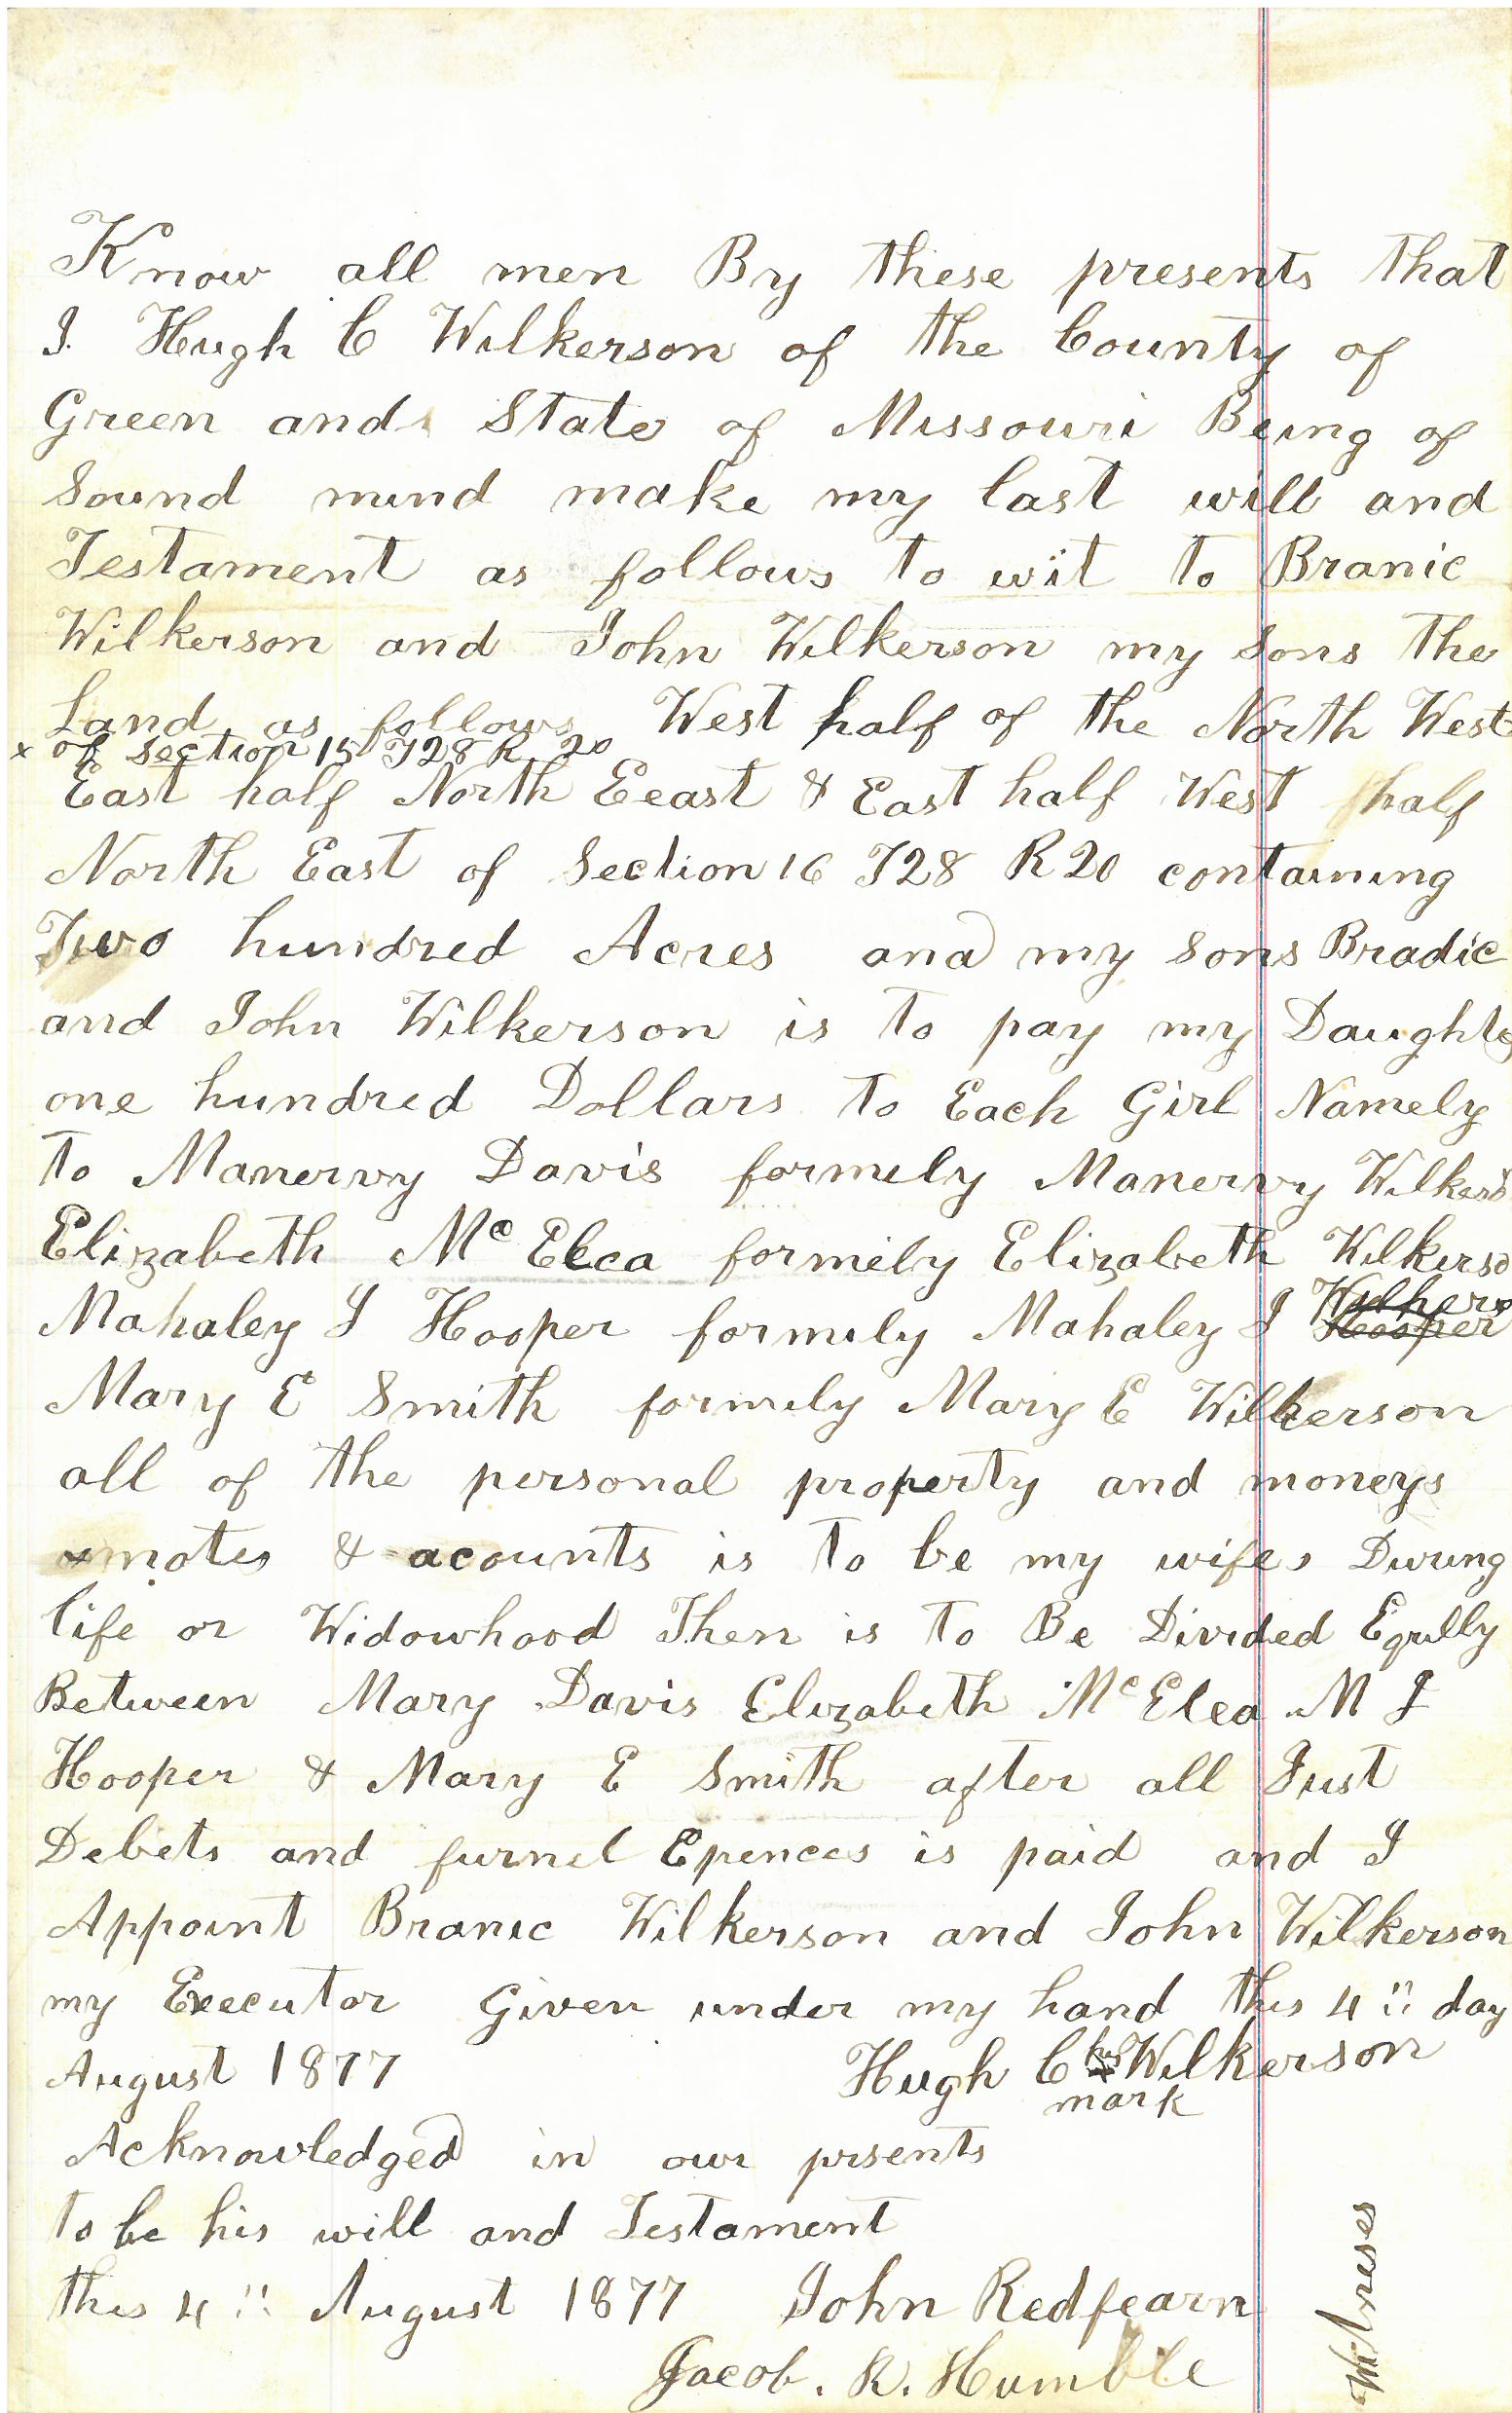 Know all men By these presents that
I. Hugh C Wilkerson of the County of
Green and State of Missouri Being of
Sound mind make my last will and
Testament as follows to wit to Branic
Wilkerson and John Wilkerson my Sons the
Land as follows West half of the North West
x of Section 15 T28 R 20
East half North Eeast & East half West half
North East of Section 16 T28 R 20 containing
Two hundred Acres and my sons Bradic
and John Wilkerson is to pay my Daughte
one hundred Dollars to Each Girl Namely
to Manervy Davis formely Manervy Wilkers
Elizabeth Mc Elea formely Elizabeth Wilkerso
Mahaley J Hooper formily Mahaley J
Mary E Smith formily Mary E Wilkerson
all of the personal property and moneys
notes & acounts is to be my wifes During
life or Widowhood Then is to Be Divided Eqully
Between Mary Davis Elizabeth Mc Elea M J
Hooper & Mary E Smith after all Just
Debets and furnel Epences is paid and I
Appoint Branic Wilkerson and John Wilkerson
my Executor Given under my hand this 4" day
August 1877 Hugh C his x mark Wilkerson
Acknowledged in our prsents
to be his will and Testament
this 4" August 1877 John Redfearn
Jacob. R. Humble
Witneses